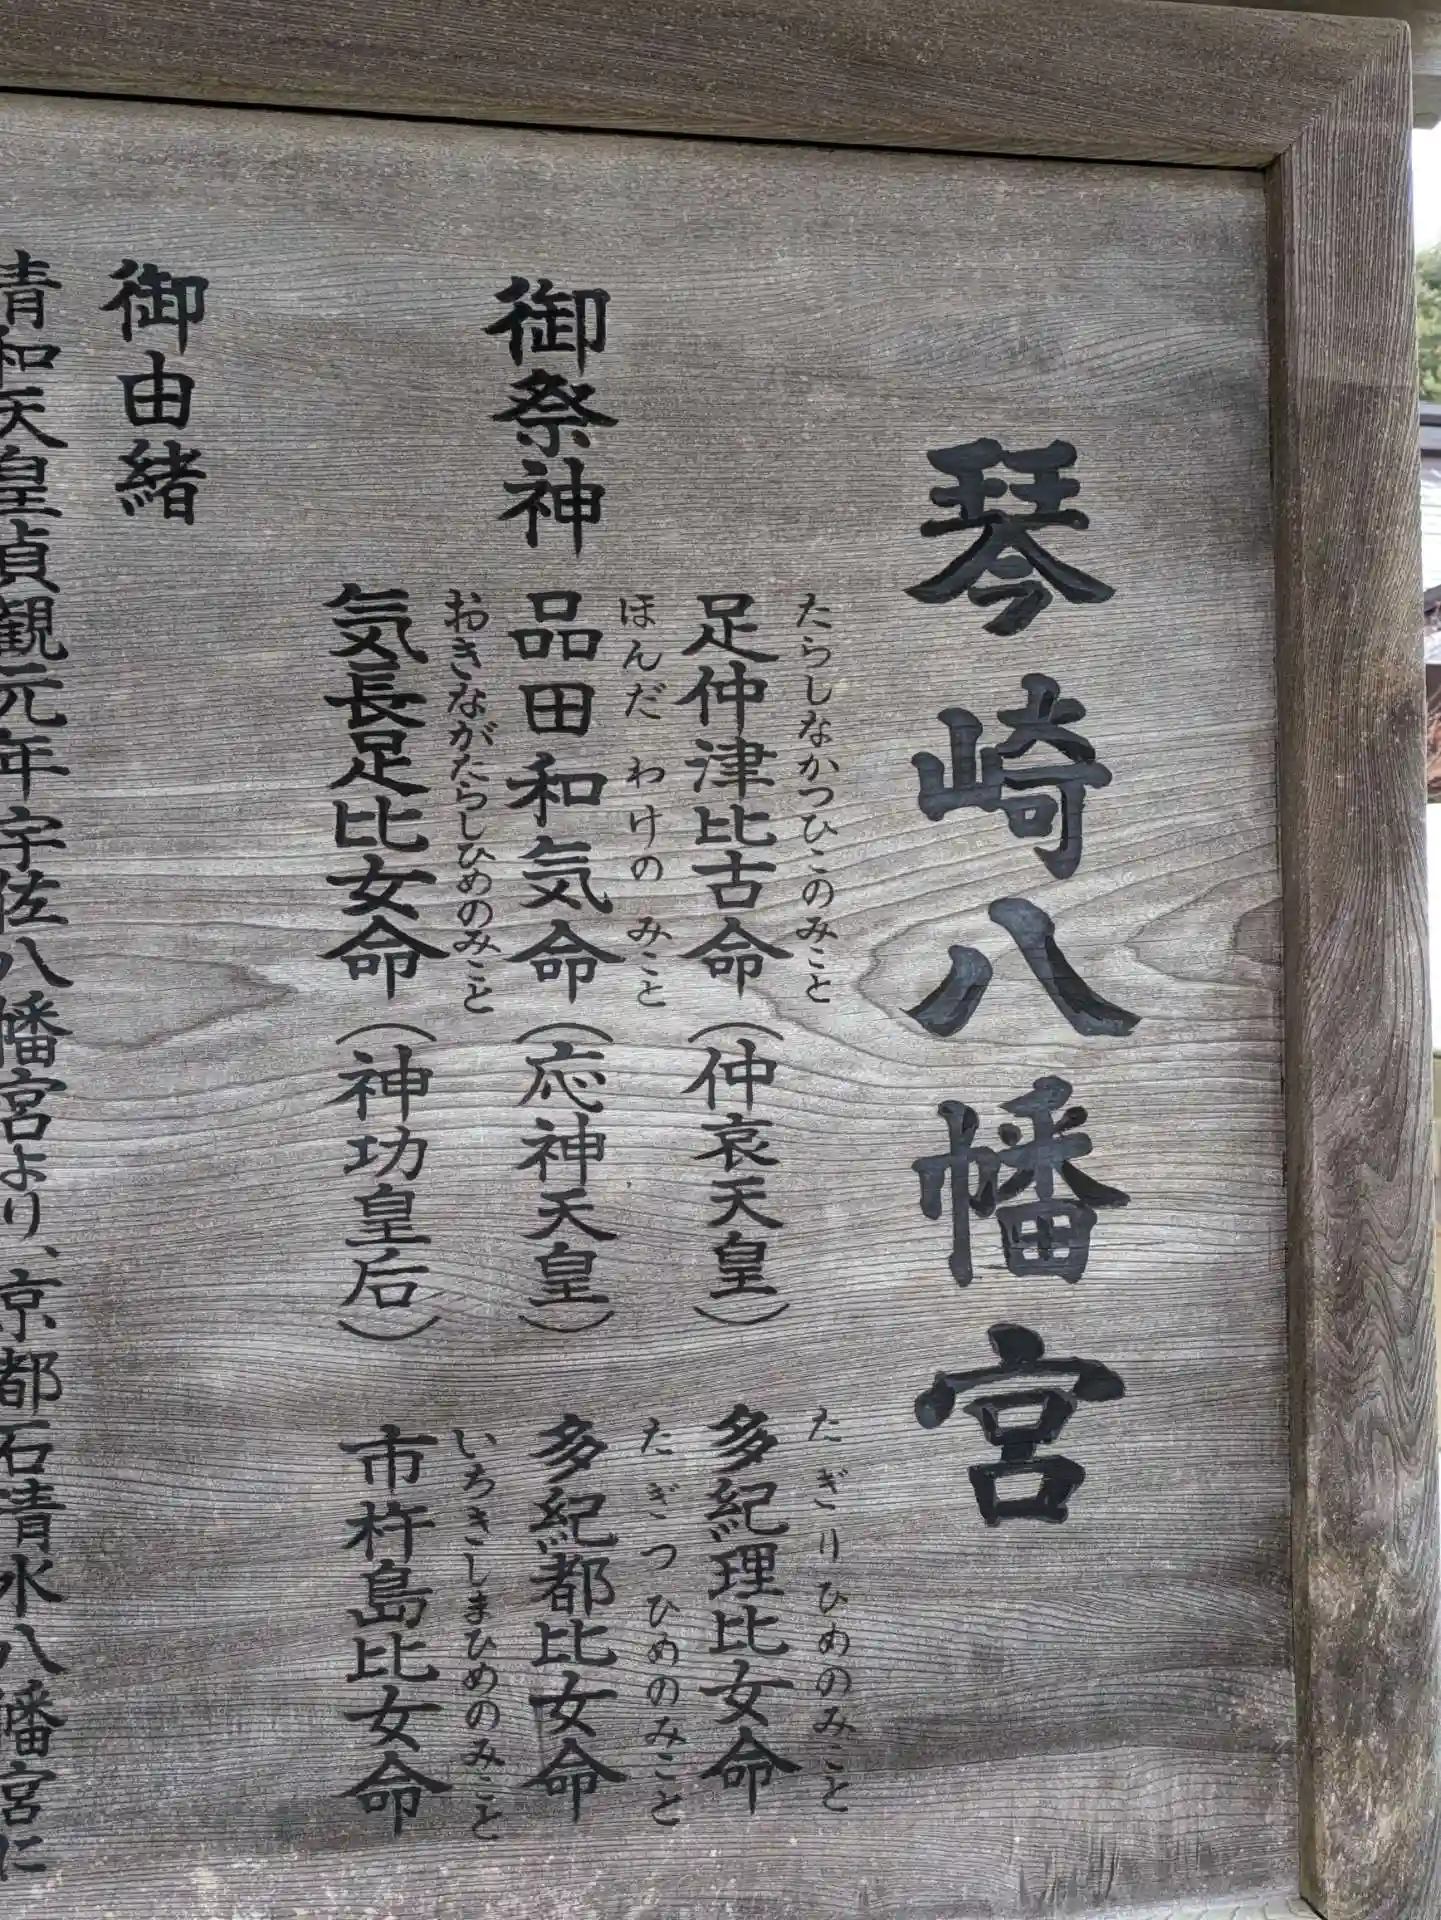 琴崎八幡宮
たらしなかつひこのみこと
足仲津比古命(仲哀天皇)
たぎりひめのみこと
多紀理比女命
御祭神
ほんだ わけの みこと
品田和気命(応神天皇)
たぎつひめのみこと
多紀都比女命
おきながたらしひめのみこと
気長足比女命(神功皇后)
いちきしまひめのみこと
市杵島比女命
御由緒
清和天皇貞観元年宇佐八幡宮より、京都石清水八幡宮に